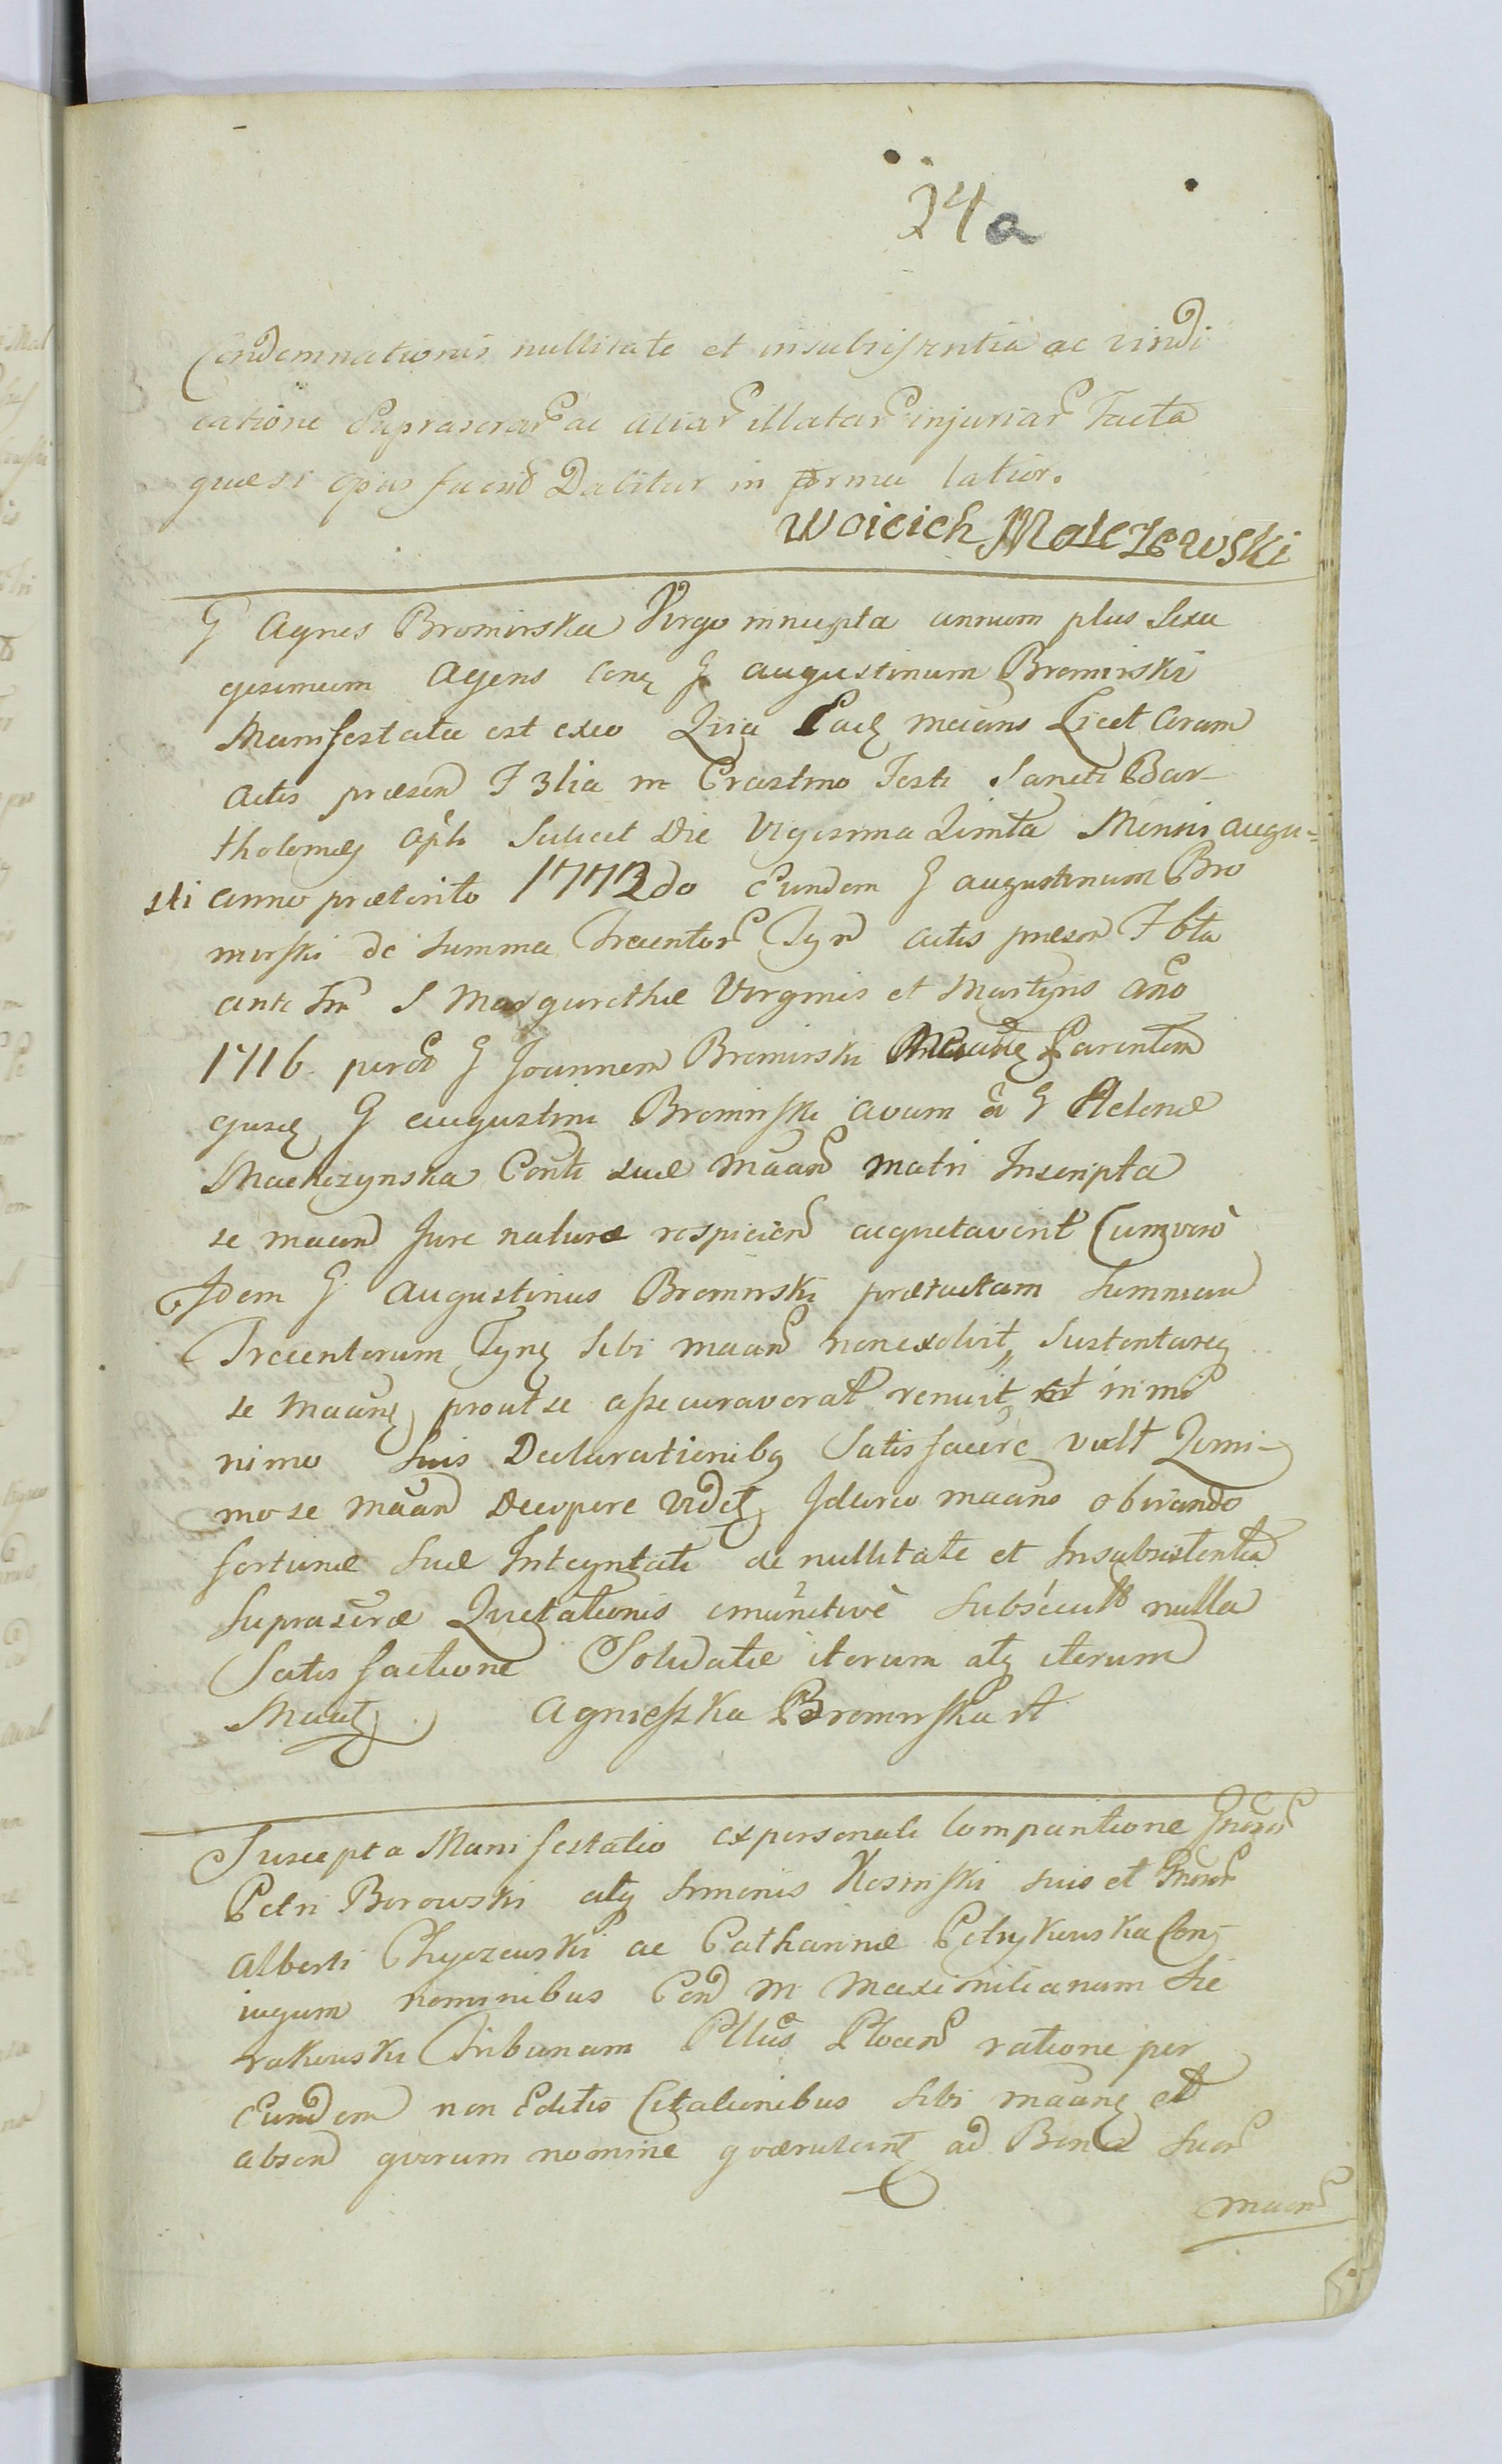 24a
Condemnationis nullitate et insubsistentia ac vindi
catione suprascrar ac aliar illatar injuriar Facta
quæ si opus fuerid Dabitur in forma latior.
Woicich Malczewski
G Agnes Bromirska Virgo innupta annum plus Sexa
gesimum Agens Conq G Augustinum Bromirski
Manifestata est exeo Quia Eadq Licet Coram
Actis præsen F 3tia in Crastino Festi Sancti Bar-
tholomæj Apli Scilicet Die Vigesima Quinta Mensis Augu=
sti Anno præterito 1772do Eundem G Augustinum Bro
mirski de Summa Trecentor Tyn Actis præsen F 6ta
ante Fm S Margarethæ Virginis et Martyris Ano
1716 per G Joannem Bromirski Parentem
ejusq G Augustini Bromirski avum G Helenæ
Machczynska Conti suæ maan matri Inscripta
se maan Jure naturæ respicien acquietaverit Cum vero
Idem G Augustinus Bromirski prætactam Summam
Trecentorum Tynq Sibi maan non exolvit, Sustentareq
se Maanq prout se assecuraverat renuit, et in mi
nimo Suis Declarationibq Satisfacere vult Quini-
mo se maan Decipere videtq Idcirco maans obviando
fortunæ Suæ Integritati de nullitate et Insubsistentia
Suprascræ Quietationis subsecut nulla
Satisfactione Solidatæ iterum atq iterum
Maatq Agnieszka Bromirska
Suscepta Manifestatio ex personali Comparitione Gneror
Petri Borowski atq Simonis Kosinski suis et Gneror
Alberti Chyczewski ac Catharinæ Petrykowska Con-
iugum nominibus Con M Maximilianum Sie
rakowski Tribunum Pllus Plocen ratione per
Eundem non Editis Citationibus Sibi maanq et
absen quorum nomine quærulantq ad Bona Suor
maan